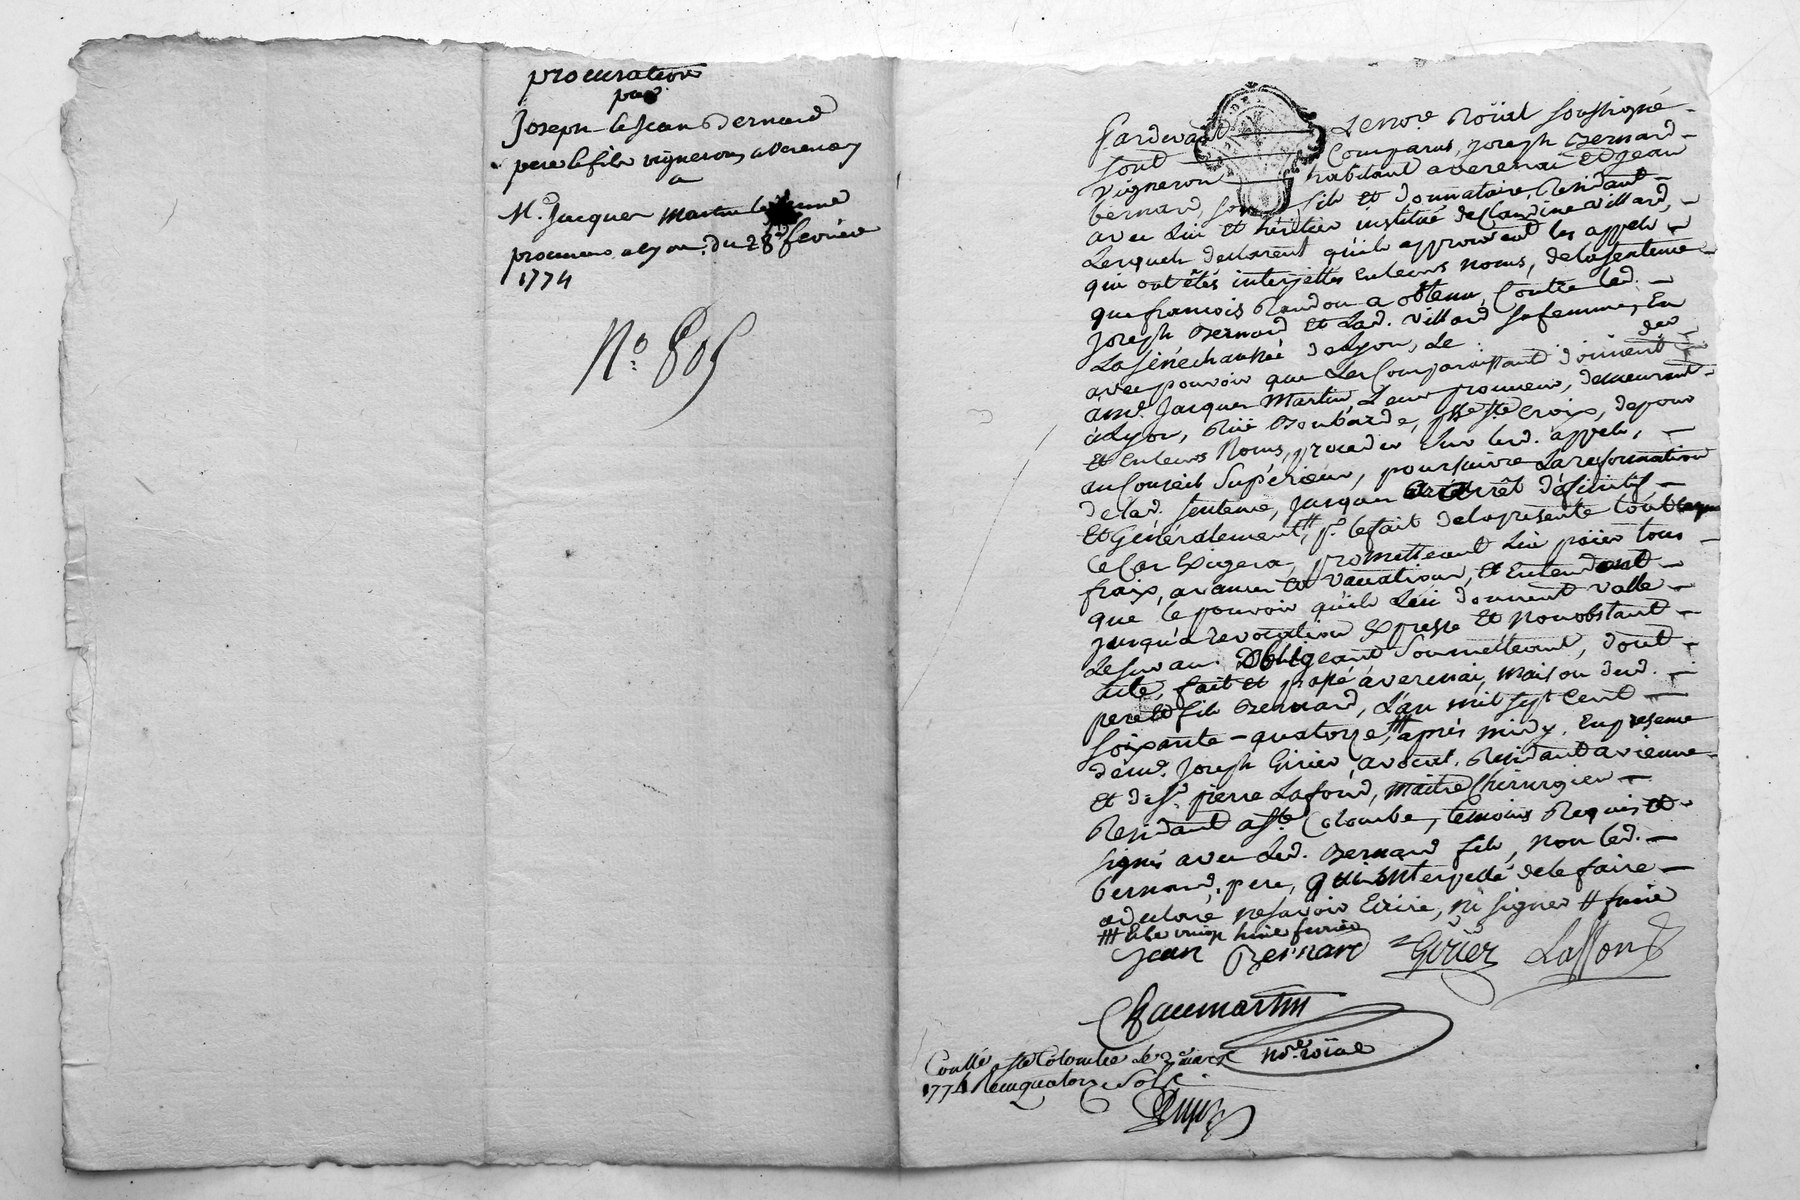 procuration
par
Joseph & Jean Bernard
pere & fils vignerons a verenay
a
Mr. Jacques Martin le jeune
procureur a lyon. du 28 fevrier
1774
No. 805
Pardevant Le nore. Roïal soussigné
sont Comparus, joseph Bernard
vigneron habitant a verenai Et jean
bernard, son fils Et donnataire Residant
avec Lui Et héritier institué de Claudine villard,
Lesquels declarent qu'ils approuvent les appels
qui ont êtés interjettés En leurs noms, de la sentence
que francois Randon a obtenu, Contre led.
joseph Bernard Et Lad. villard sa femme, En
La sénéchaussée de Lyon, Le
avec pouvoir que Les Comparaissant donnent
à me. Jacques Martin Leur procureur, demeurant
à Lyon, Ruë Bombarde, psse. ste. Croix, de pour
Et En leurs Noms, proceder sur lesd. appels,
au Conseil Supérieur, poursuivre La reformation
de lad. sentence, jusques arrêt définitif
Et Générallement, pr. le fait de la presente tout
Ce Cas Exigera, promettant Lui païer tous
fraix, avances Et vacations, Et Entendent
que le pouvoir qu'ils Lui donnent valle
jusqu'a revocation Expresse Et nonobstant
Le sur an. Obligeant soumettant, dont
acte, fait et passé à verenai, maison dud.
pere Et fils Bernard, L'an mil sept Cent
soixante-quatorze, ### après midy, En presence
de me. Joseph Girier, avocat, Residant a vienne
Et de sr. pierre Lafond, maitre Chirurgien
Residant a ste. Colombe, temoins Requis Et
signés avec Led. Bernard fils, non led.
bernard, pere, qui interpellé de le faire
a declaré ne savoir Ecrire, ni signer #
### Et le vingt huit fevrier
Jean Bernard Girier Laffond
Chaumartin
nore. roïal
Conllé a ste Colombe Le 2 mars
1774 Reçu quatorze sols